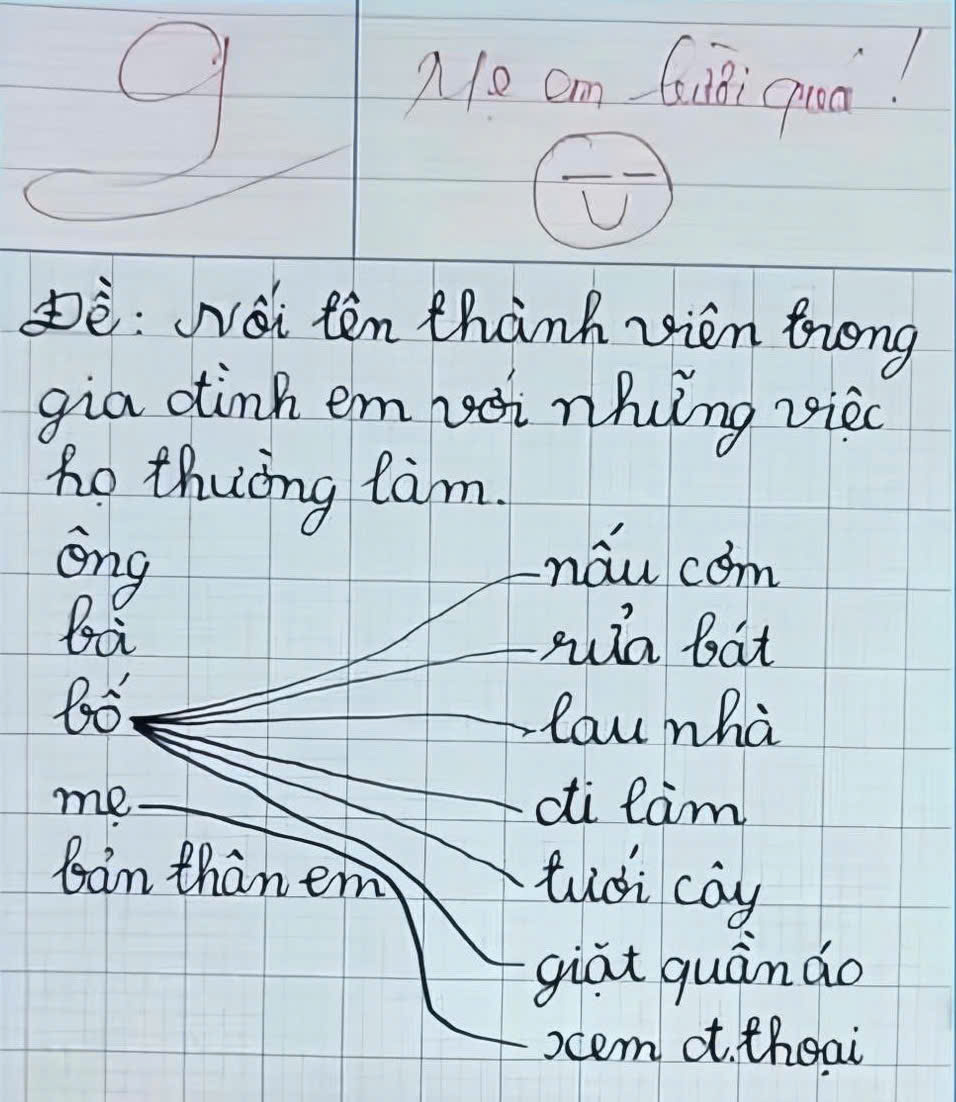 9
Mẹ em lười quá!
Đề: Nối tên thành viên trong
gia đình em với những việc
họ thường làm.
ông
nấu cơm
bà
rửa bát
bố
lau nhà
mẹ
đi làm
bản thân em
tưới cây
giặt quần áo
xem đ.thoại